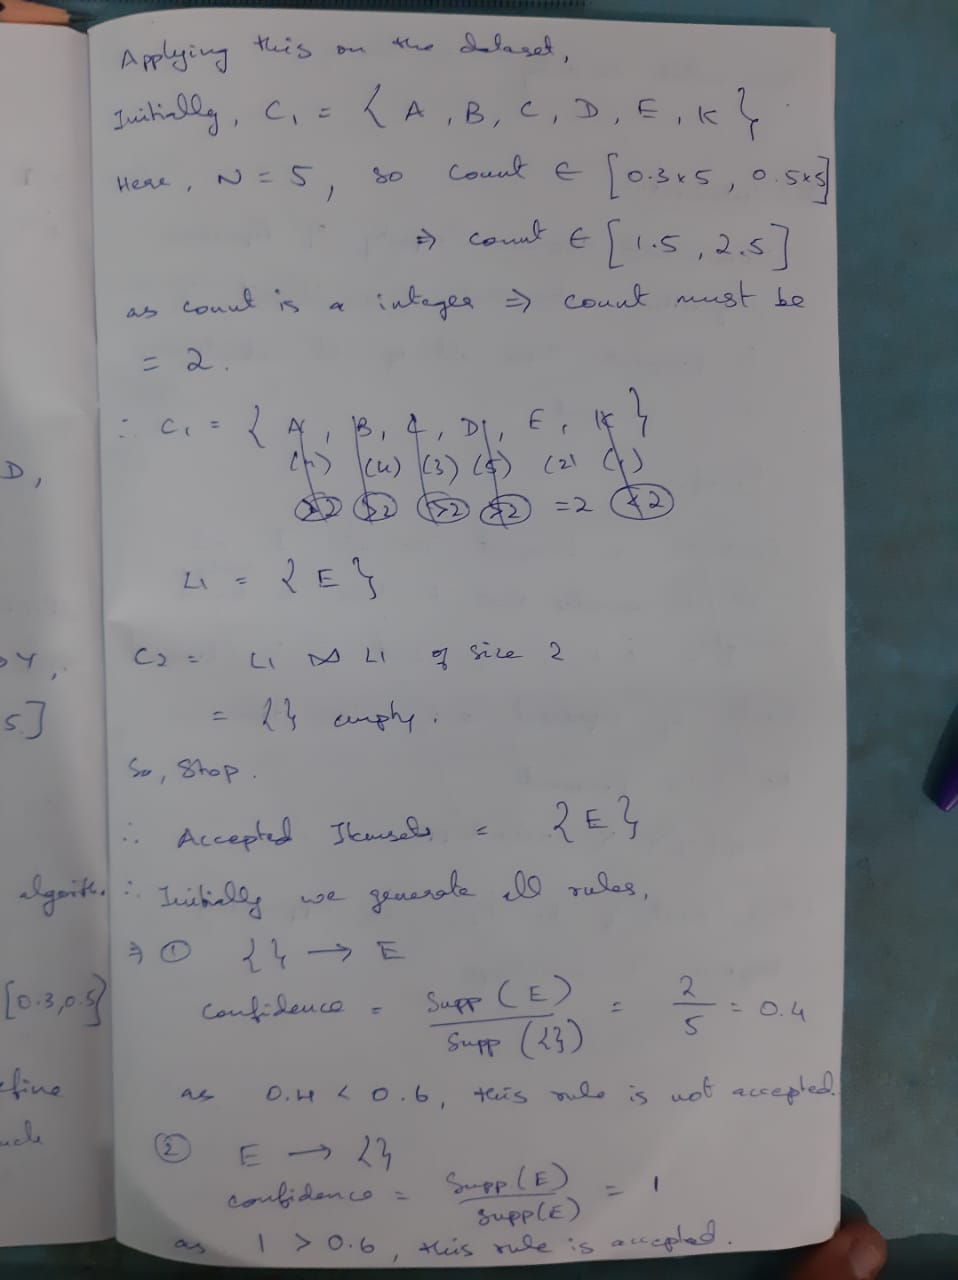 Applying this on the dataset,
Initially, C₁ = { A, B, C, D, E, K }
Here, N = 5, so count ∈ [0.3x5, 0.5x5]
⇒ count ∈ [1.5, 2.5]
as count is a integer ⇒ count must be
= 2.
∴ C₁ = { A, B, C, D, E, K }
(4) (4) (3) (5) (2) (1)
>2 >2 >2 >2 =2 <2
L1 = { E }
C2 = L1 ⋈ L1 of size 2
= {} empty.
So, Stop.
∴ Accepted Itemsets = { E }
∴ Initially we generate all rules,
⇒ ① {} → E
Confidence = Supp(E) / Supp({}) = 2/5 = 0.4
as 0.4 < 0.6, this rule is not accepted.
② E → {}
confidence = Supp(E) / Supp(E) = 1
as 1 > 0.6, this rule is accepted.
D,
Y,
5]
algorith.
[0.3,0.5]